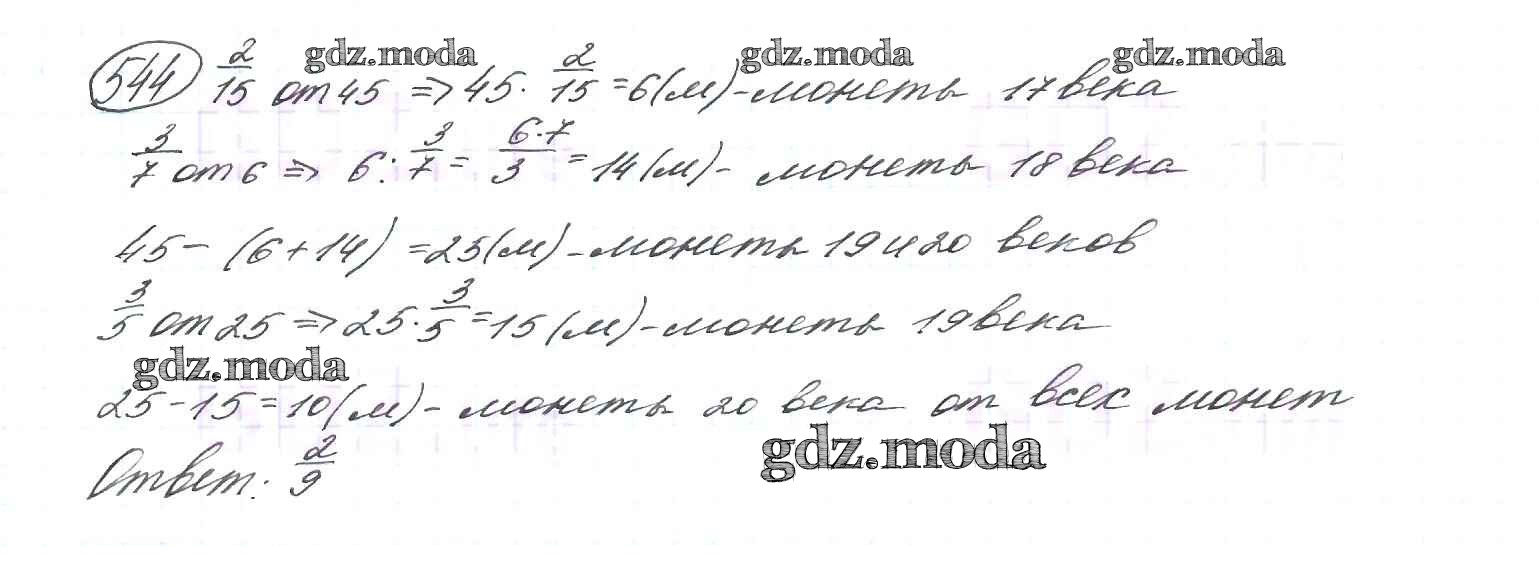 544 2/15 от 45 => 45 · 2/15 = 6(м) - монеты 17 века
3/7 от 6 => 6 : 3/7 = 6·7/3 = 14(м) - монеты 18 века
45 - (6 + 14) = 25(м) - монеты 19 и 20 веков
3/5 от 25 => 25 · 3/5 = 15(м) - монеты 19 века
25 - 15 = 10(м) - монеты 20 века от всех монет
Ответ: 2/9
gdz.moda
gdz.moda
gdz.moda
gdz.moda
gdz.moda